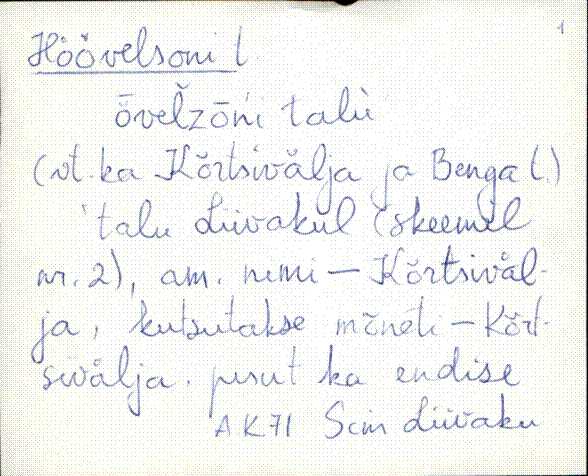 1
Höövelsoni t.
ȫvelʒ̆ōni talù
(vt. ka Kõrtsivälja ja Benga t.)
talu Liivakul (skeemil
nr. 2), am. nimi – Kõrtsiväl-
ja, kutsutakse mõneti – Kõrt-
sivälja. pisut ka endise
AK 71 Sim Liivaku